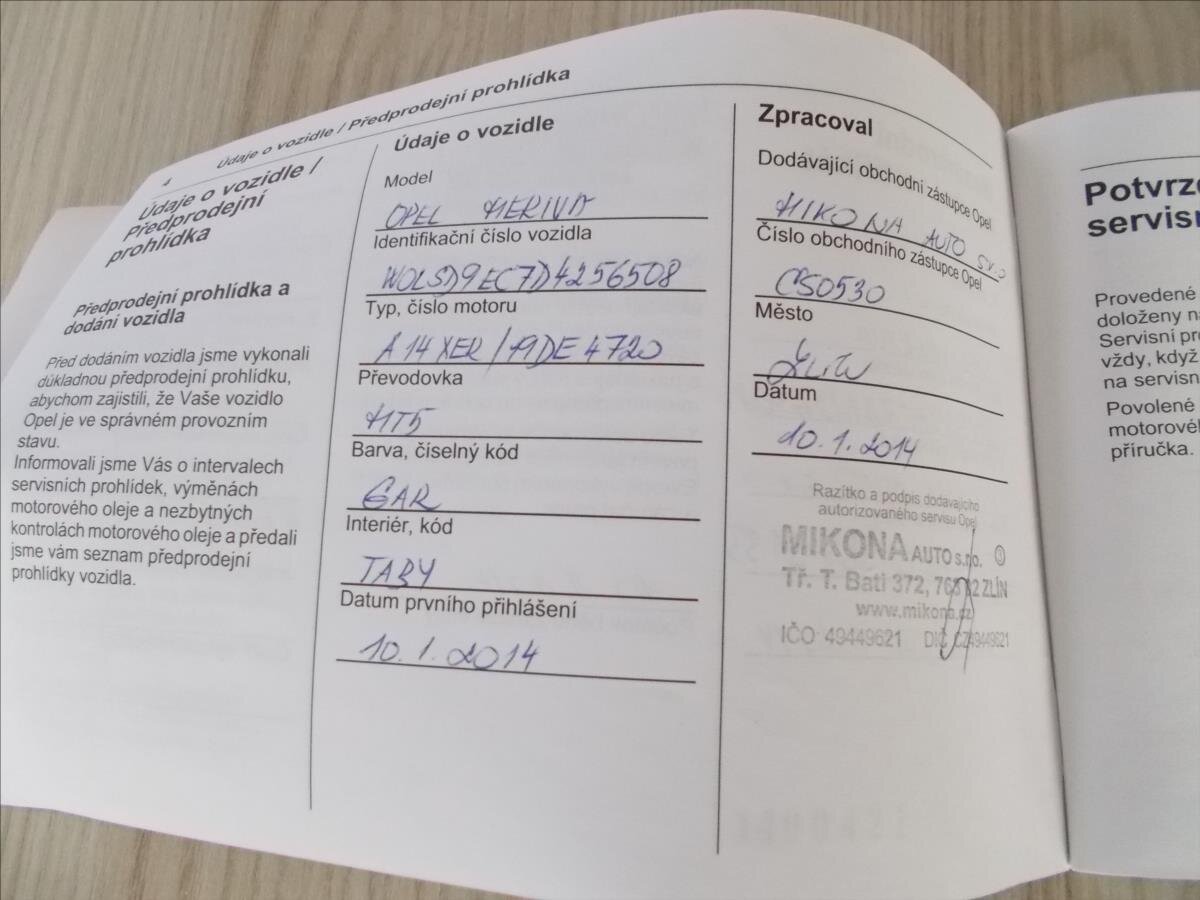 4
Údaje o vozidle / Předprodejní prohlídka
Údaje o vozidle /
Předprodejní
prohlídka
Předprodejní prohlídka a
dodání vozidla
Před dodáním vozidla jsme vykonali
důkladnou předprodejní prohlídku,
abychom zajistili, že Vaše vozidlo
Opel je ve správném provozním
stavu.
Informovali jsme Vás o intervalech
servisních prohlídek, výměnách
motorového oleje a nezbytných
kontrolách motorového oleje a předali
jsme vám seznam předprodejní
prohlídky vozidla.
Údaje o vozidle
Model
OPEL MERIVA
Identifikační číslo vozidla
W0LSD9EC7D4256508
Typ, číslo motoru
A14XER/19DE4720
Převodovka
MT5
Barva, číselný kód
GAR
Interiér, kód
TABY
Datum prvního přihlášení
10.1.2014
Zpracoval
Dodávající obchodní zástupce Opel
MIKONA AUTO s.r.o
Číslo obchodního zástupce Opel
CS0530
Město
Zlín
Datum
10.1.2014
Razítko a podpis dodávajícího
autorizovaného servisu Opel
MIKONA AUTO s.r.o.
Tř. T. Bati 372, 763 02 ZLÍN
www.mikona.cz
IČO 49449621 DIČ CZ49449621
Potvrze
servisn
Provedené
doloženy na
Servisní pro
vždy, když
na servisn
Povolené
motorovéh
příručka.